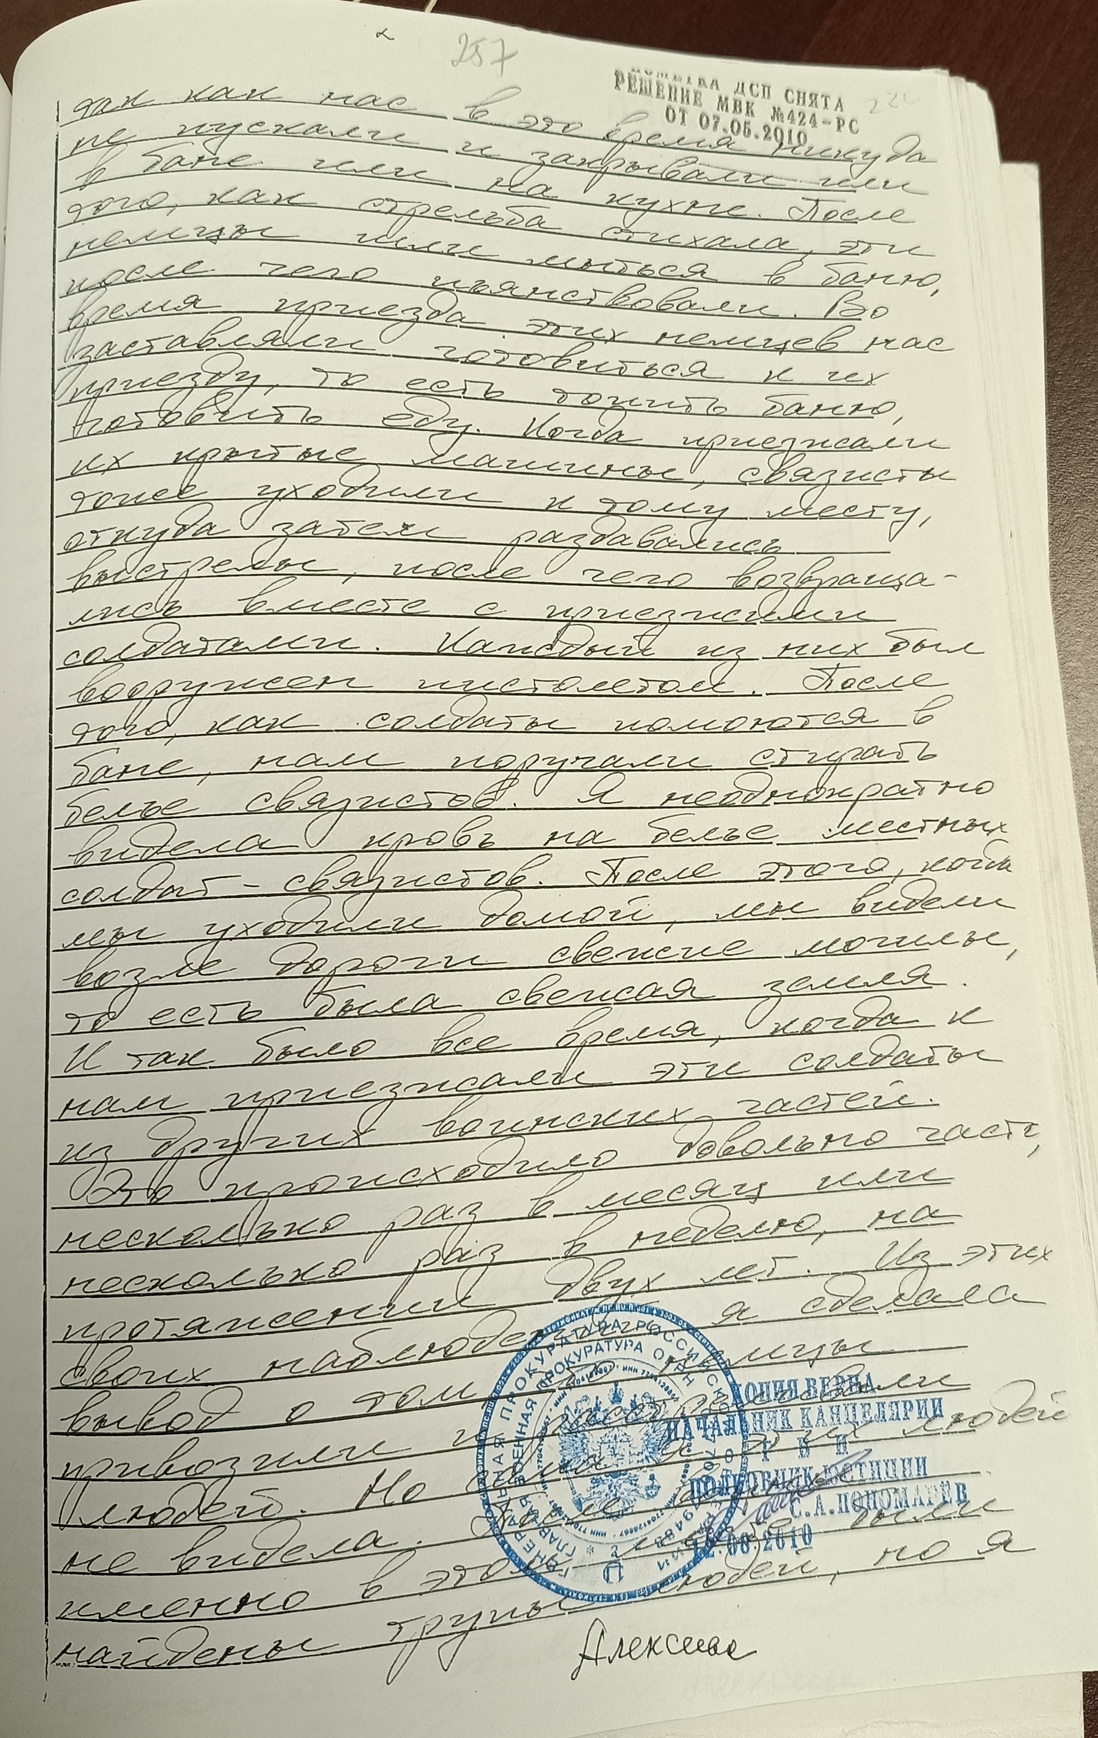 257
ПОМЕТКА ДСП СНЯТА
РЕШЕНИЕ МВК №424-РС
ОТ 07.05.2010
так как нас в это время никуда
не пускали и закрывали или
в бане или на кухне. После
того, как стрельба стихала, эти
немцы шли мыться в баню,
после чего пьянствовали. Во
время приезда этих немцев нас
заставляли готовиться к их
приезду, то есть топить баню,
готовить еду. Когда приезжали
их крытые машины, связисты
тоже уходили к тому месту,
откуда затем раздавались
выстрелы, после чего возвраща-
лись вместе с приезжими
солдатами. Каждый из них был
вооружен пистолетом. После
того, как солдаты помоются в
бане, нам поручали стирать
белье связистов. Я неоднократно
видела кровь на белье местных
солдат-связистов. После этого, когда
мы уходили домой, мы видели
возле дороги свежие могилы,
то есть была свежая земля.
И так было все время, когда к
нам приезжали эти солдаты
из других воинских частей.
Это происходило довольно часто,
несколько раз в месяц или
несколько раз в неделю, на
протяжении двух лет. Из этих
своих наблюдений я сделала
вывод о том, что немцы
привозили и расстреливали
людей. Но сама я этих людей
не видела. После войны
именно в этом месте были
найдены трупы людей, но я
Алексеева
ГЕНЕРАЛЬНАЯ ПРОКУРАТУРА РОССИЙСКОЙ
ГЛАВНАЯ ВОЕННАЯ ПРОКУРАТУРА ОГРН
КОПИЯ ВЕРНА
НАЧАЛЬНИК КАНЦЕЛЯРИИ
ПОЛКОВНИК ЮСТИЦИИ
С.А.ПОНОМАРЁВ